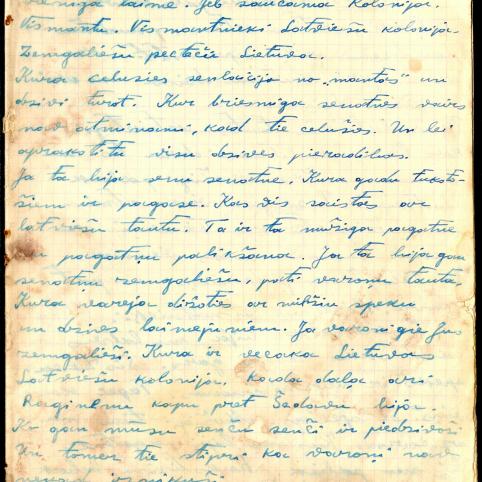 laime. Jeb saucama Kolonija.
Vismantu. Vismantnieki Latviešu kolonija.
Zemgaliešu pēctečie Lietuva.
Kura celusies senlocija no "mantas" un
dzivi turot. Kur briesmiga senotnes vairs
nav atminami, kad tie celušies. Un lei
aprakstitu visu dzives pieradibas.
Ja ta bija senu senotne. Kura gadu tukstō-
šiem ir pagājse. Kas vis saistās ar
latviešu tautu. Ta ir ta mužiga pagatne
un pagatņu palikšana. Ja ta bija gan
senotnu zemgaliešu, pati varonu tauta.
Kura vareja dižoties ar milžiu speku
un dzives laimejumiem. Ja varonigie
zemgalieši. Kura ir vecaka Lietuvas
Latviešu kolonija. Kāda daļa ari
Raginenu kapu pret Šadavu bija.
Ko gan mūsu senču senči ir piedzivoši
Un tomer tie stipri ka varoņi nav